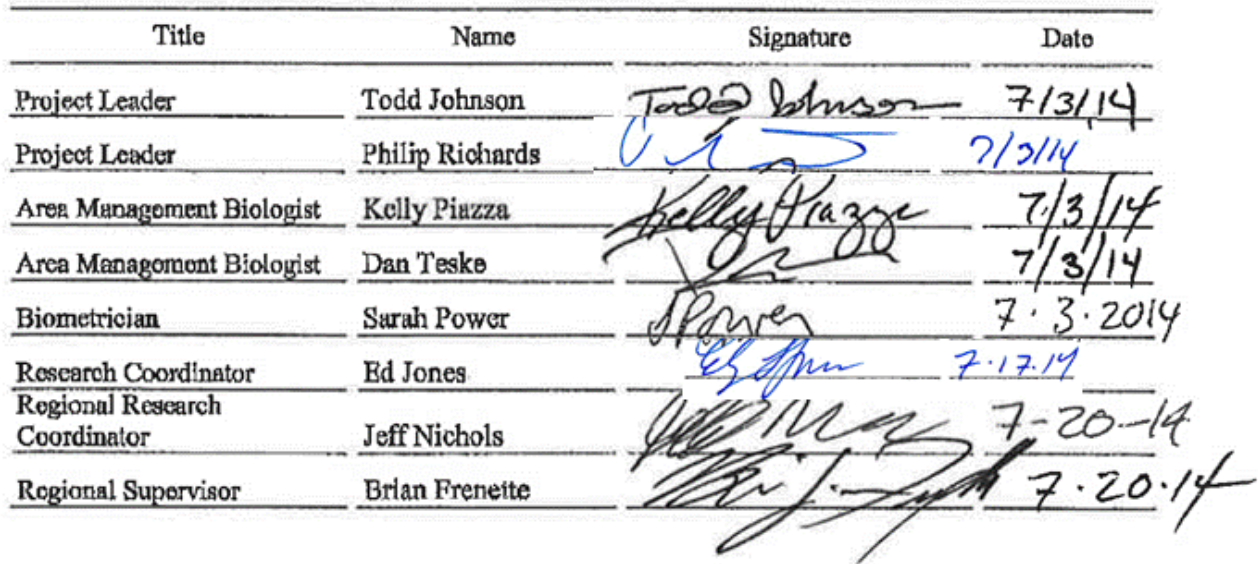 Title Name Signature Date
Project Leader Todd Johnson Todd Johnson 7/3/14
Project Leader Philip Richards 7/3/14
Area Management Biologist Kelly Piazza Kelly Piazza 7/3/14
Area Management Biologist Dan Teske 7/3/14
Biometrician Sarah Power SPower 7.3.2014
Research Coordinator Ed Jones 7.17.14
Regional Research
Coordinator Jeff Nichols 7-20-14
Regional Supervisor Brian Frenette 7.20.14